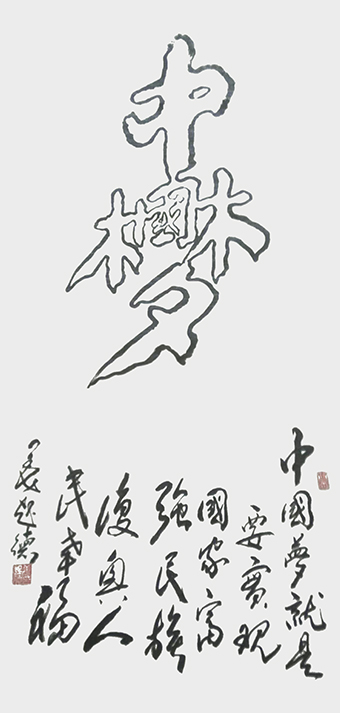 中國梦
中國夢就是
要實現
國家富
強民族
復興人
民幸福